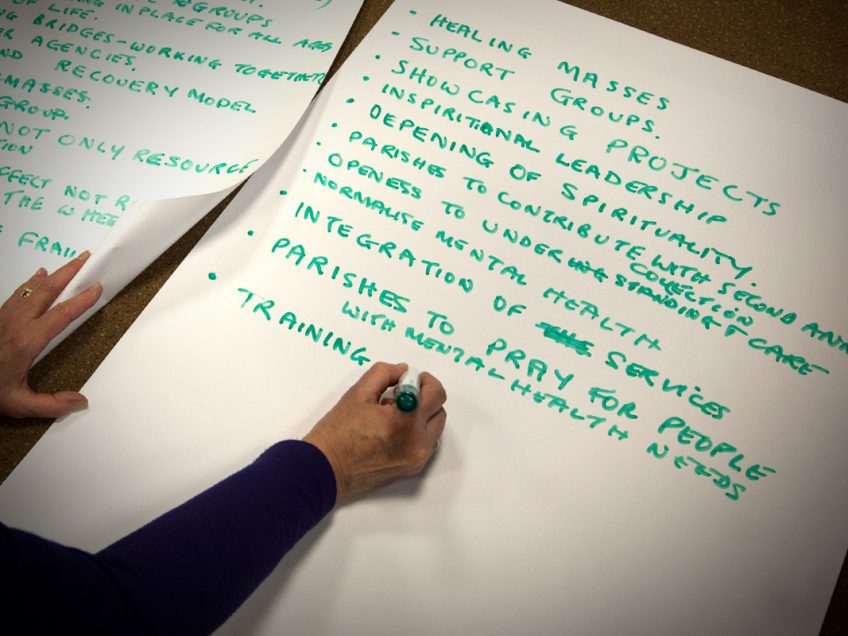 GROUPS
IN PLACE FOR ALL AGES
OF LIFE.
BRIDGES - WORKING TOGETHER
AGENCIES.
RECOVERY MODEL
MASSES.
GROUP.
NOT ONLY RESOURCE
NOT
THE
• HEALING MASSES
• SUPPORT GROUPS.
• SHOWCASING PROJECTS
• INSPIRITIONAL LEADERSHIP
• DEPENING OF SPIRITUALITY.
• PARISHES TO CONTRIBUTE WITH SECOND
COLLECTION
• OPENESS TO UNDERSTANDING & CARE
• NORMALISE MENTAL HEALTH
• INTEGRATION OF SERVICES
• PARISHES TO PRAY FOR PEOPLE
WITH MENTAL HEALTH NEEDS
• TRAINING